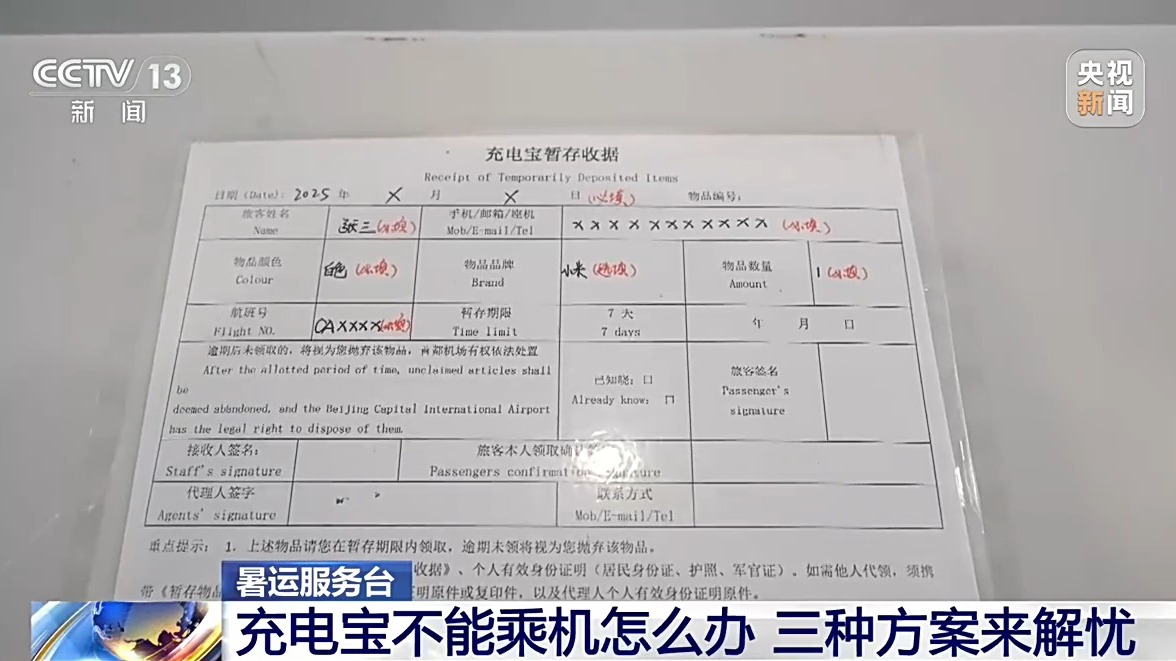 CCTV 13
新 闻
央视
新闻
充电宝暂存收据
Receipt of Temporarily Deposited Items
日期(Date): 2025 年 X 月 X 日 (必填) 物品编号:
旅客姓名
Name
张三(必填)
手机/邮箱/座机
Mob/E-mail/Tel
XXXXXXXXXXX (必填)
物品颜色
Colour
白色(必填)
物品品牌
Brand
小米(必填)
物品数量
Amount
1(必填)
航班号
Flight NO.
CAXXXX(必填)
暂存期限
Time limit
7 天
7 days
年 月 日
逾期后未领取的，将视为您抛弃该物品，首都机场有权依法处置
After the allotted period of time, unclaimed articles shall
be
deemed abandoned, and the Beijing Capital International Airport
has the legal right to dispose of them.
已知晓: 口
Already know: 口
旅客签名
Passenger's
signature
接收人签名:
Staff's signature
旅客本人领取确认
Passengers
代理人签字
Agents' signature
联系方式
Mob/E-mail/Tel
重点提示: 1. 上述物品请您在暂存期限内领取，逾期未领将视为您抛弃该物品。
收据》、个人有效身份证明(居民身份证、护照、军官证)。如需他人代领，须携
带《暂存物品
证明原件或复印件，以及代理人个人有效身份证明原件。
暑运服务台
充电宝不能乘机怎么办 三种方案来解忧